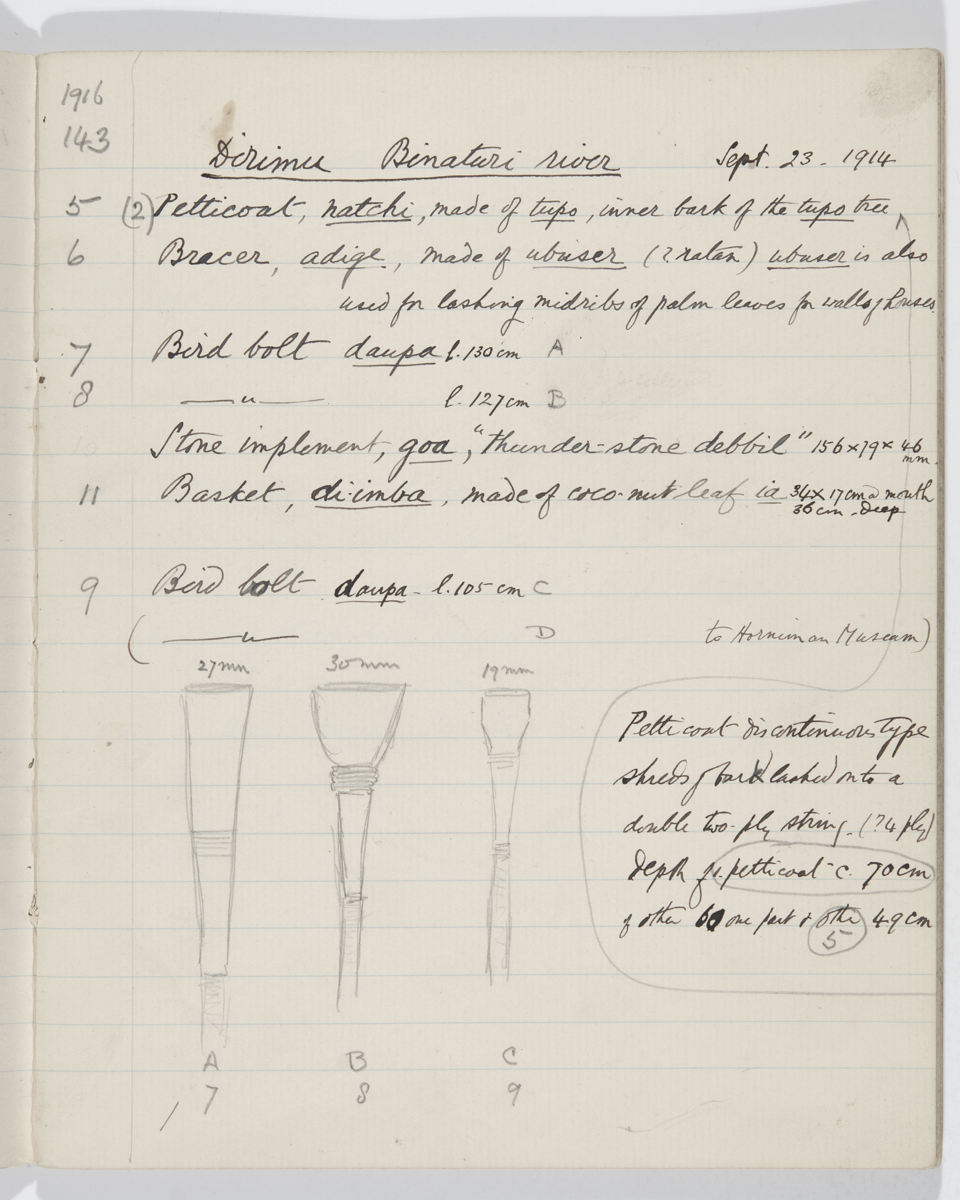 1916
143
Dirimu Binaturi river Sept. 23. 1914
5 (2) Petticoat, natchi, made of tupo, inner bark of the tupo tree
6 Bracer, adige, made of ubuser (? ratan) ubuser is also
used for lashing midribs of palm leaves for walls of houses.
7 Bird bolt daupa l. 130 cm A
8 —— " —— l. 127 cm B
Stone implement, goa, "thunder-stone debbil" 156 × 79 × 46 mm.
11 Basket, di:imba, made of coco-nut leaf ia 34 × 17 cm @ mouth
36 cm. deep
9 Bird bolt daupa - l. 105 cm C
( —— " —— D to Horniman Museum)
27mm 30mm 19mm
Petticoat discontinuous type
shreds of bark lashed onto a
double two-ply string. (? 4 ply)
depth of 1. petticoat c. 70 cm
of other one part & othe 49 cm
5
A B C
/ 7 8 9